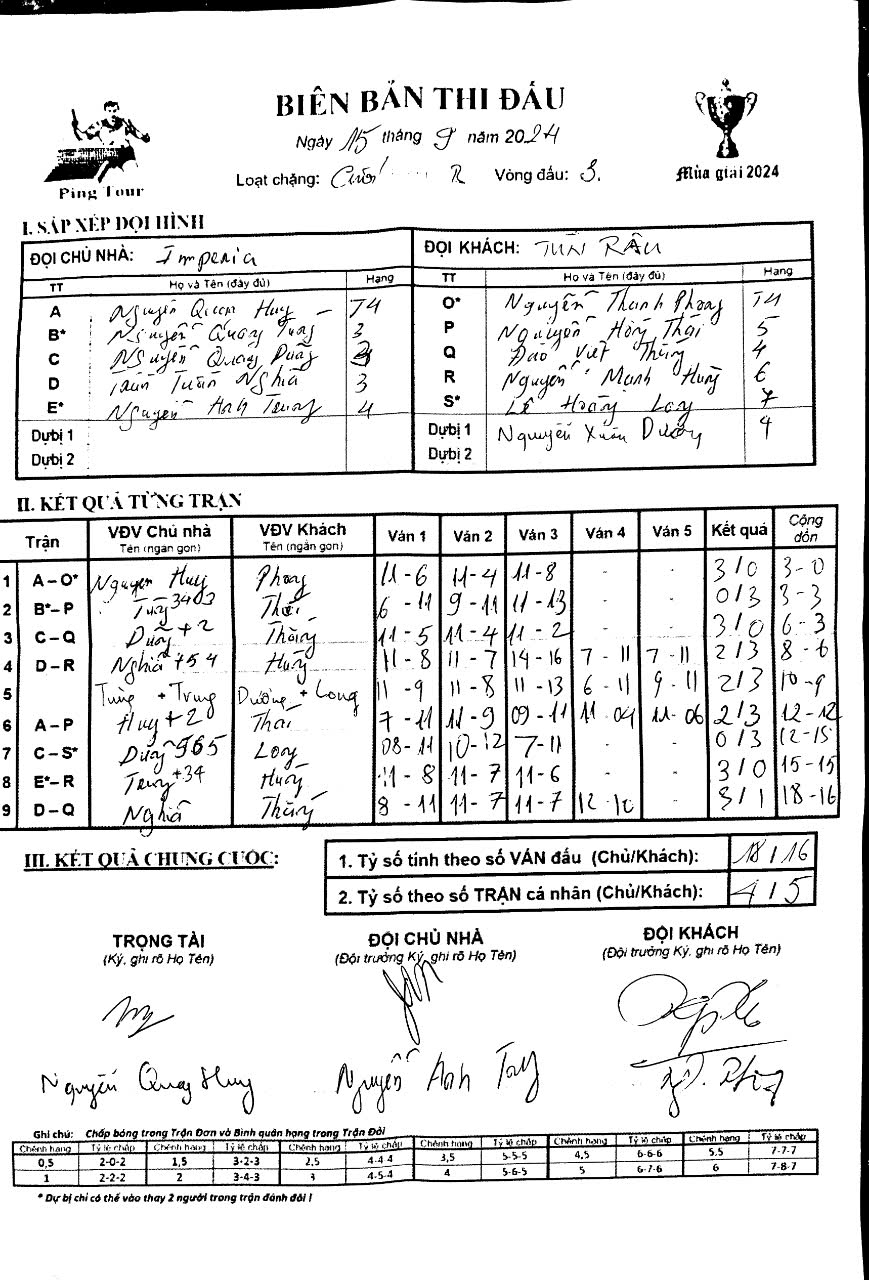 BIÊN BẢN THI ĐẤU
Ngày 15 tháng 9 năm 2024
Ping Tour
Loạt chặng: Cuối R Vòng đấu: 3.
Mùa giải 2024
I. SẮP XẾP ĐỘI HÌNH
ĐỘI CHỦ NHÀ: Imperia ĐỘI KHÁCH: TUẤN RÂU
TT Họ và Tên (đầy đủ) Hạng TT Họ và Tên (đầy đủ) Hạng
A Nguyễn Quang Huy T4 O* Nguyễn Thanh Phong T4
B* Nguyễn Quang Tùng 3 P Nguyễn Hồng Thái 5
C Nguyễn Quang Dũng 3 Q Đào Việt Thắng 4
D Trần Tuấn Nghĩa 3 R Nguyễn Mạnh Hùng 6
E* Nguyễn Anh Trung 4 S* Lê Hoàng Long 7
Dự bị 1 Dự bị 1 Nguyễn Xuân Dương 4
Dự bị 2 Dự bị 2
II. KẾT QUẢ TỪNG TRẬN
Trận VĐV Chủ nhà VĐV Khách Ván 1 Ván 2 Ván 3 Ván 4 Ván 5 Kết quả Cộng dồn
Tên (ngắn gọn) Tên (ngắn gọn)
1 A – O* Nguyen Huy Phong 11 - 6 11 - 4 11 - 8 - - 3/0 3-0
2 B* – P Tùng 3403 Thái 6 - 11 9 - 11 11 - 13 - - 0/3 3-3
3 C – Q Dũng +2 Thắng 11 - 5 11 - 4 11 - 2 - - 3/0 6-3
4 D – R Nghĩa +54 Hùng 11 - 8 11 - 7 14 - 16 7 - 11 7 - 11 2/3 8-6
5 Tùng + Trung Dương + Long 11 - 9 11 - 8 11 - 13 6 - 11 9 - 11 2/3 10-9
6 A – P Huy +20 Thái 7 - 11 11 - 9 09 - 11 11 - 04 11 - 06 2/3 12-12
7 C – S* Dũng 565 Long 08 - 11 10 - 12 7 - 11 - - 0/3 12-15
8 E* – R Trung +34 Hùng 11 - 8 11 - 7 11 - 6 - - 3/0 15-15
9 D – Q Nghĩa Thắng 8 - 11 11 - 7 11 - 7 12 - 10 - 3/1 18-16
III. KẾT QUẢ CHUNG CUỘC:
1. Tỷ số tính theo số VÁN đấu (Chủ/Khách): 18/16
2. Tỷ số theo số TRẬN cá nhân (Chủ/Khách): 4/5
TRỌNG TÀI ĐỘI CHỦ NHÀ ĐỘI KHÁCH
(Ký, ghi rõ Họ Tên) (Đội trưởng Ký, ghi rõ Họ Tên) (Đội trưởng Ký, ghi rõ Họ Tên)
Nguyễn Quang Huy Nguyễn Anh
Ghi chú: Chấp bóng trong Trận Đơn và Bình quân hạng trong Trận Đôi
Chênh hạng Tỷ lệ chấp Chênh hạng Tỷ lệ chấp Chênh hạng Tỷ lệ chấp Chênh hạng Tỷ lệ chấp Chênh hạng Tỷ lệ chấp Chênh hạng Tỷ lệ chấp
0,5 2-0-2 1,5 3-2-3 2,5 4-4-4 3,5 5-5-5 4,5 6-6-6 5.5 7-7-7
1 2-2-2 2 3-4-3 3 4-5-4 4 5-6-5 5 6-7-6 6 7-8-7
* Dự bị chỉ có thể vào thay 2 người trong trận đánh đôi !